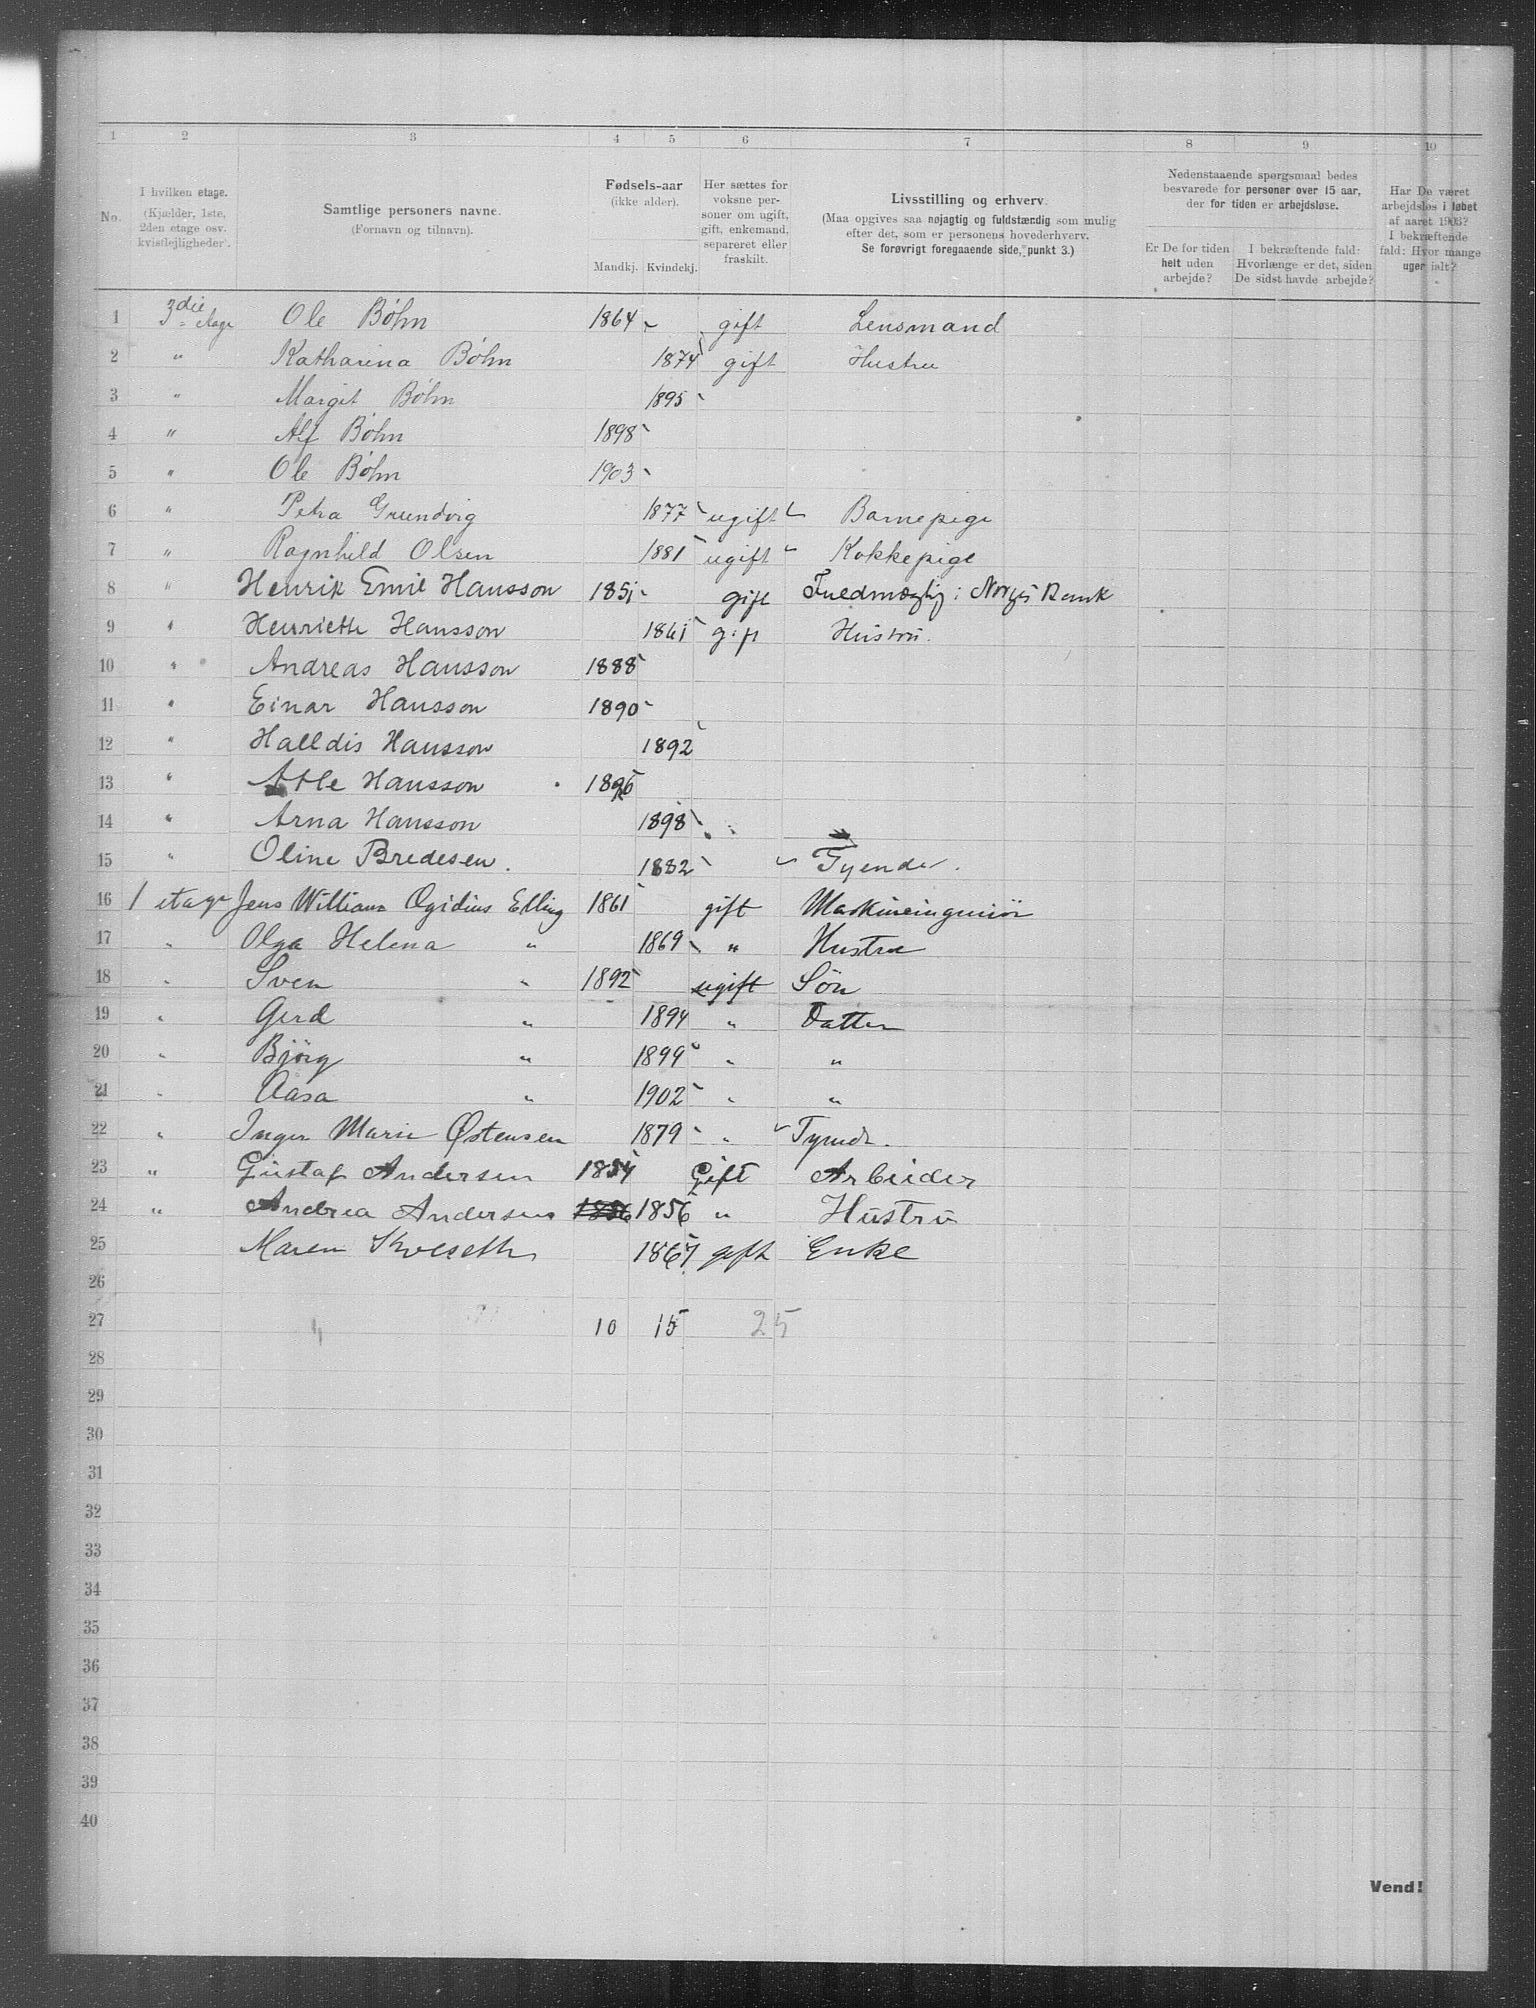 1 2 3 4 5 6 7 8 9 10
No. I hvilken etage. (Kjælder, 1ste, 2den etage osv. kvistlejligheder). Samtlige personers navne. (Fornavn og tilnavn). Fødsels-aar (ikke alder). Mandkj. Kvindekj. Her sættes for voksne personer om ugift, gift, enkemand, separeret eller fraskilt. Livsstilling og erhverv. (Maa opgives saa nøjagtig og fuldstændig som mulig efter det, som er personens hovederhverv. Se forøvrigt foregaaende side, punkt 3.) Nedenstaaende spørgsmaal bedes besvarede for personer over 15 aar, der for tiden er arbejdsløse. Er De for tiden helt uden arbejde? I bekræftende fald: Hvorlænge er det, siden De sidst havde arbejde? Har De været arbejdsløs i løbet af aaret 1903? I bekræftende fald: Hvor mange uger ialt?
1 3die etage Ole Bøhn 1864 gift Lensmand
2 " Katharina Bøhn 1874 gift Hustru
3 " Margit Bøhn 1895
4 " Alf Bøhn 1898
5 " Ole Bøhn 1903
6 " Petra Grundvig 1877 ugift Barnepige
7 " Ragnhild Olsen 1881 ugift Kokkepige
8 " Henrik Emil Hansson 1851 gift Fuldmægtig i Norges Bank
9 " Henriette Hansson 1861 gift Hustru.
10 " Andreas Hansson 1888
11 " Einar Hansson 1890
12 " Halldis Hansson 1892
13 " Atle Hansson 1896
14 " Arna Hansson 1898
15 " Oline Bredesen. 1882 Tyende.
16 1 etage Jens William Ogidius Elling 1861 gift Maskiningeniör
17 " Olga Helena " 1869 " Hustru
18 " Sven " 1892 ugift Sön
19 " Gerd " 1894 " Datter
20 " Björg " 1899 " "
21 " Aasa " 1902 " "
22 " Inger Marie Østensen 1879 " Tyende.
23 " Gustaf Andersen 1854 Gift Arbeider
24 " Andrea Andersen 1856 1856 " Hustru
25 Maren Kveseth 1867 gift Enke
26
27 10 15 25
28
29
30
31
32
33
34
35
36
37
38
39
40
Vend!